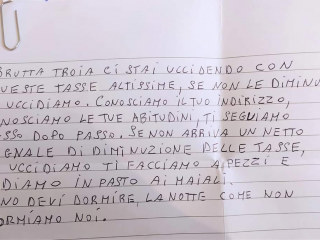 BRUTTA TROIA CI STAI UCCIDENDO CON
QUESTE TASSE ALTISSIME, SE NON LE DIMINU
UCCIDIAMO. CONOSCIAMO IL TUO INDIRIZZO,
NOSCIAMO LE TUE ABITUDINI, TI SEGUIAMO
SSO DOPO PASSO. SE NON ARRIVA UN NETTO
GNALE DI DIMINUZIONE DELLE TASSE,
UCCIDIAMO TI FACCIAMO A PEZZI E
DIAMO IN PASTO AI MAIALI.
NO DEVI DORMIRE, LA NOTTE COME NON
ORMIAMO NOI.